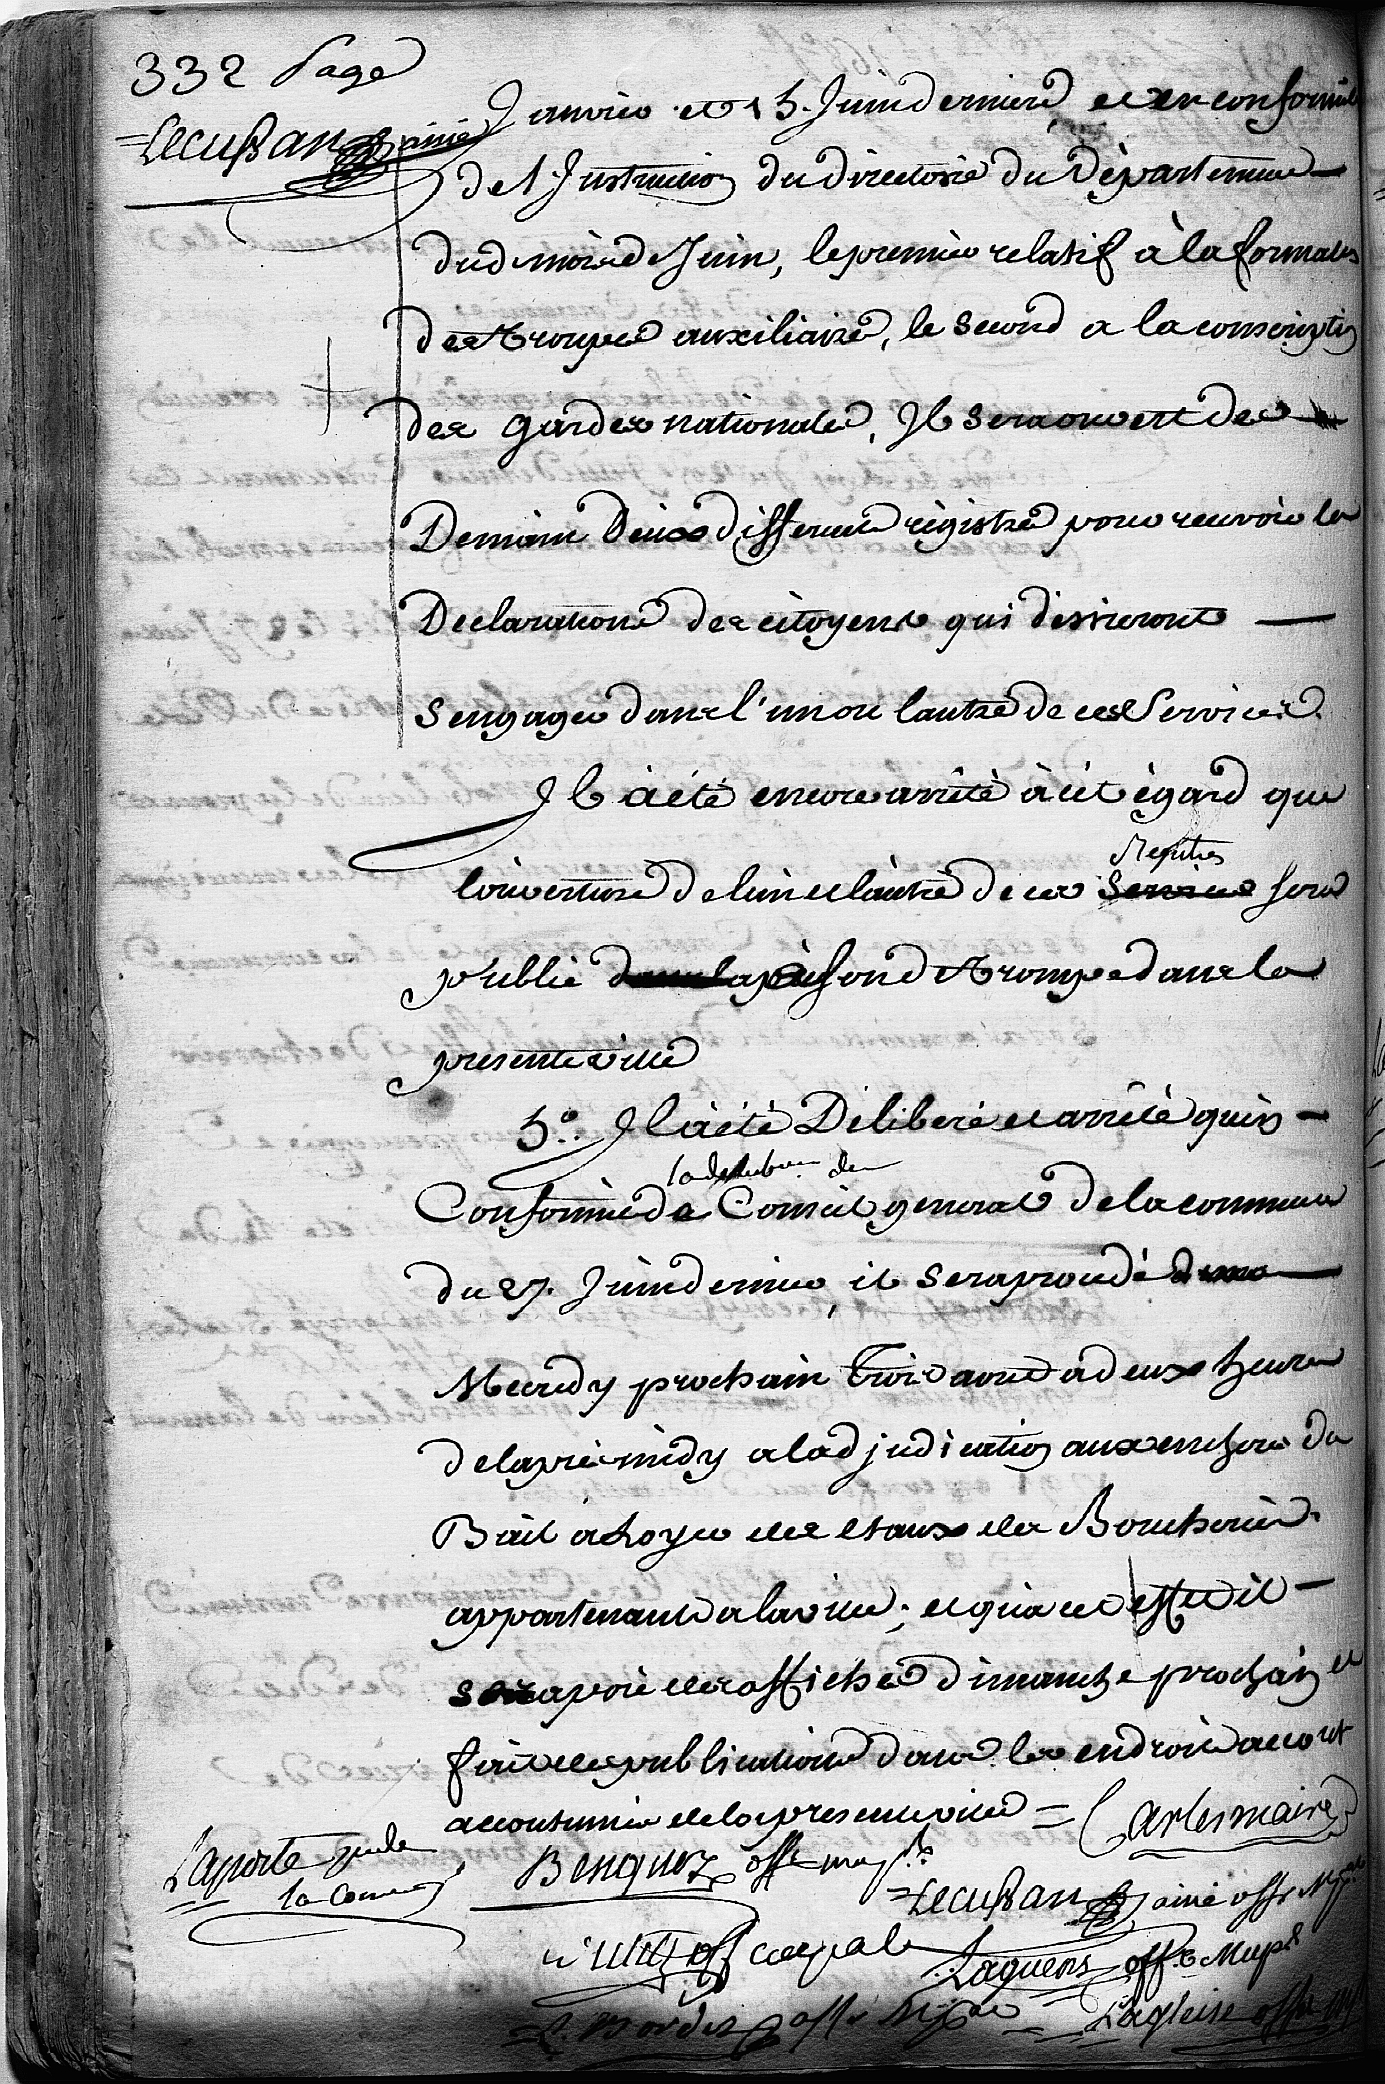 332 Page
Lecussan ainé
Janvier et 15. Juin derniers et en conformité
de l'Instruction du directoire du Département
dud. mois de Juin, le premier relatif à la formation
des troupes auxiliaires, le second a la conscription
des gardes nationales, Il sera ouvert des
Demain Deux differents régistres pour recevoir les
Declarations des citoyens qui desireront
s'engager dans l'un ou lautre de ces Services.
Il à été encore arrêté à cet égard que
l'ouverture de lun et lautre de ces Services Registres sera
publié à son de trompe dans la
presente ville
5.° Il à été Deliberé et arrêté qu'en
la deliberaon du
Conformité de Conseil general de la commune
du 27. Juin dernier, il sera procedé
Mecredy prochain trois aout à deux heures
de laprès midy a ladjudication aux encheres du
Bail a Loyer des etaux des Boucheries
appartenants a la ville; et qu'a cet effet il
sera aposé des affiches Dimanche prochain et
fait des publications dans les endroits
accoutumés de la presente ville = Cartes maire
Laporte pr de la Come
Benquez offer mupl
Lecussan ainé offr Mpal
off cipal
Laguens offr Mupl
offr Mpal
Lagleise offr Mpl